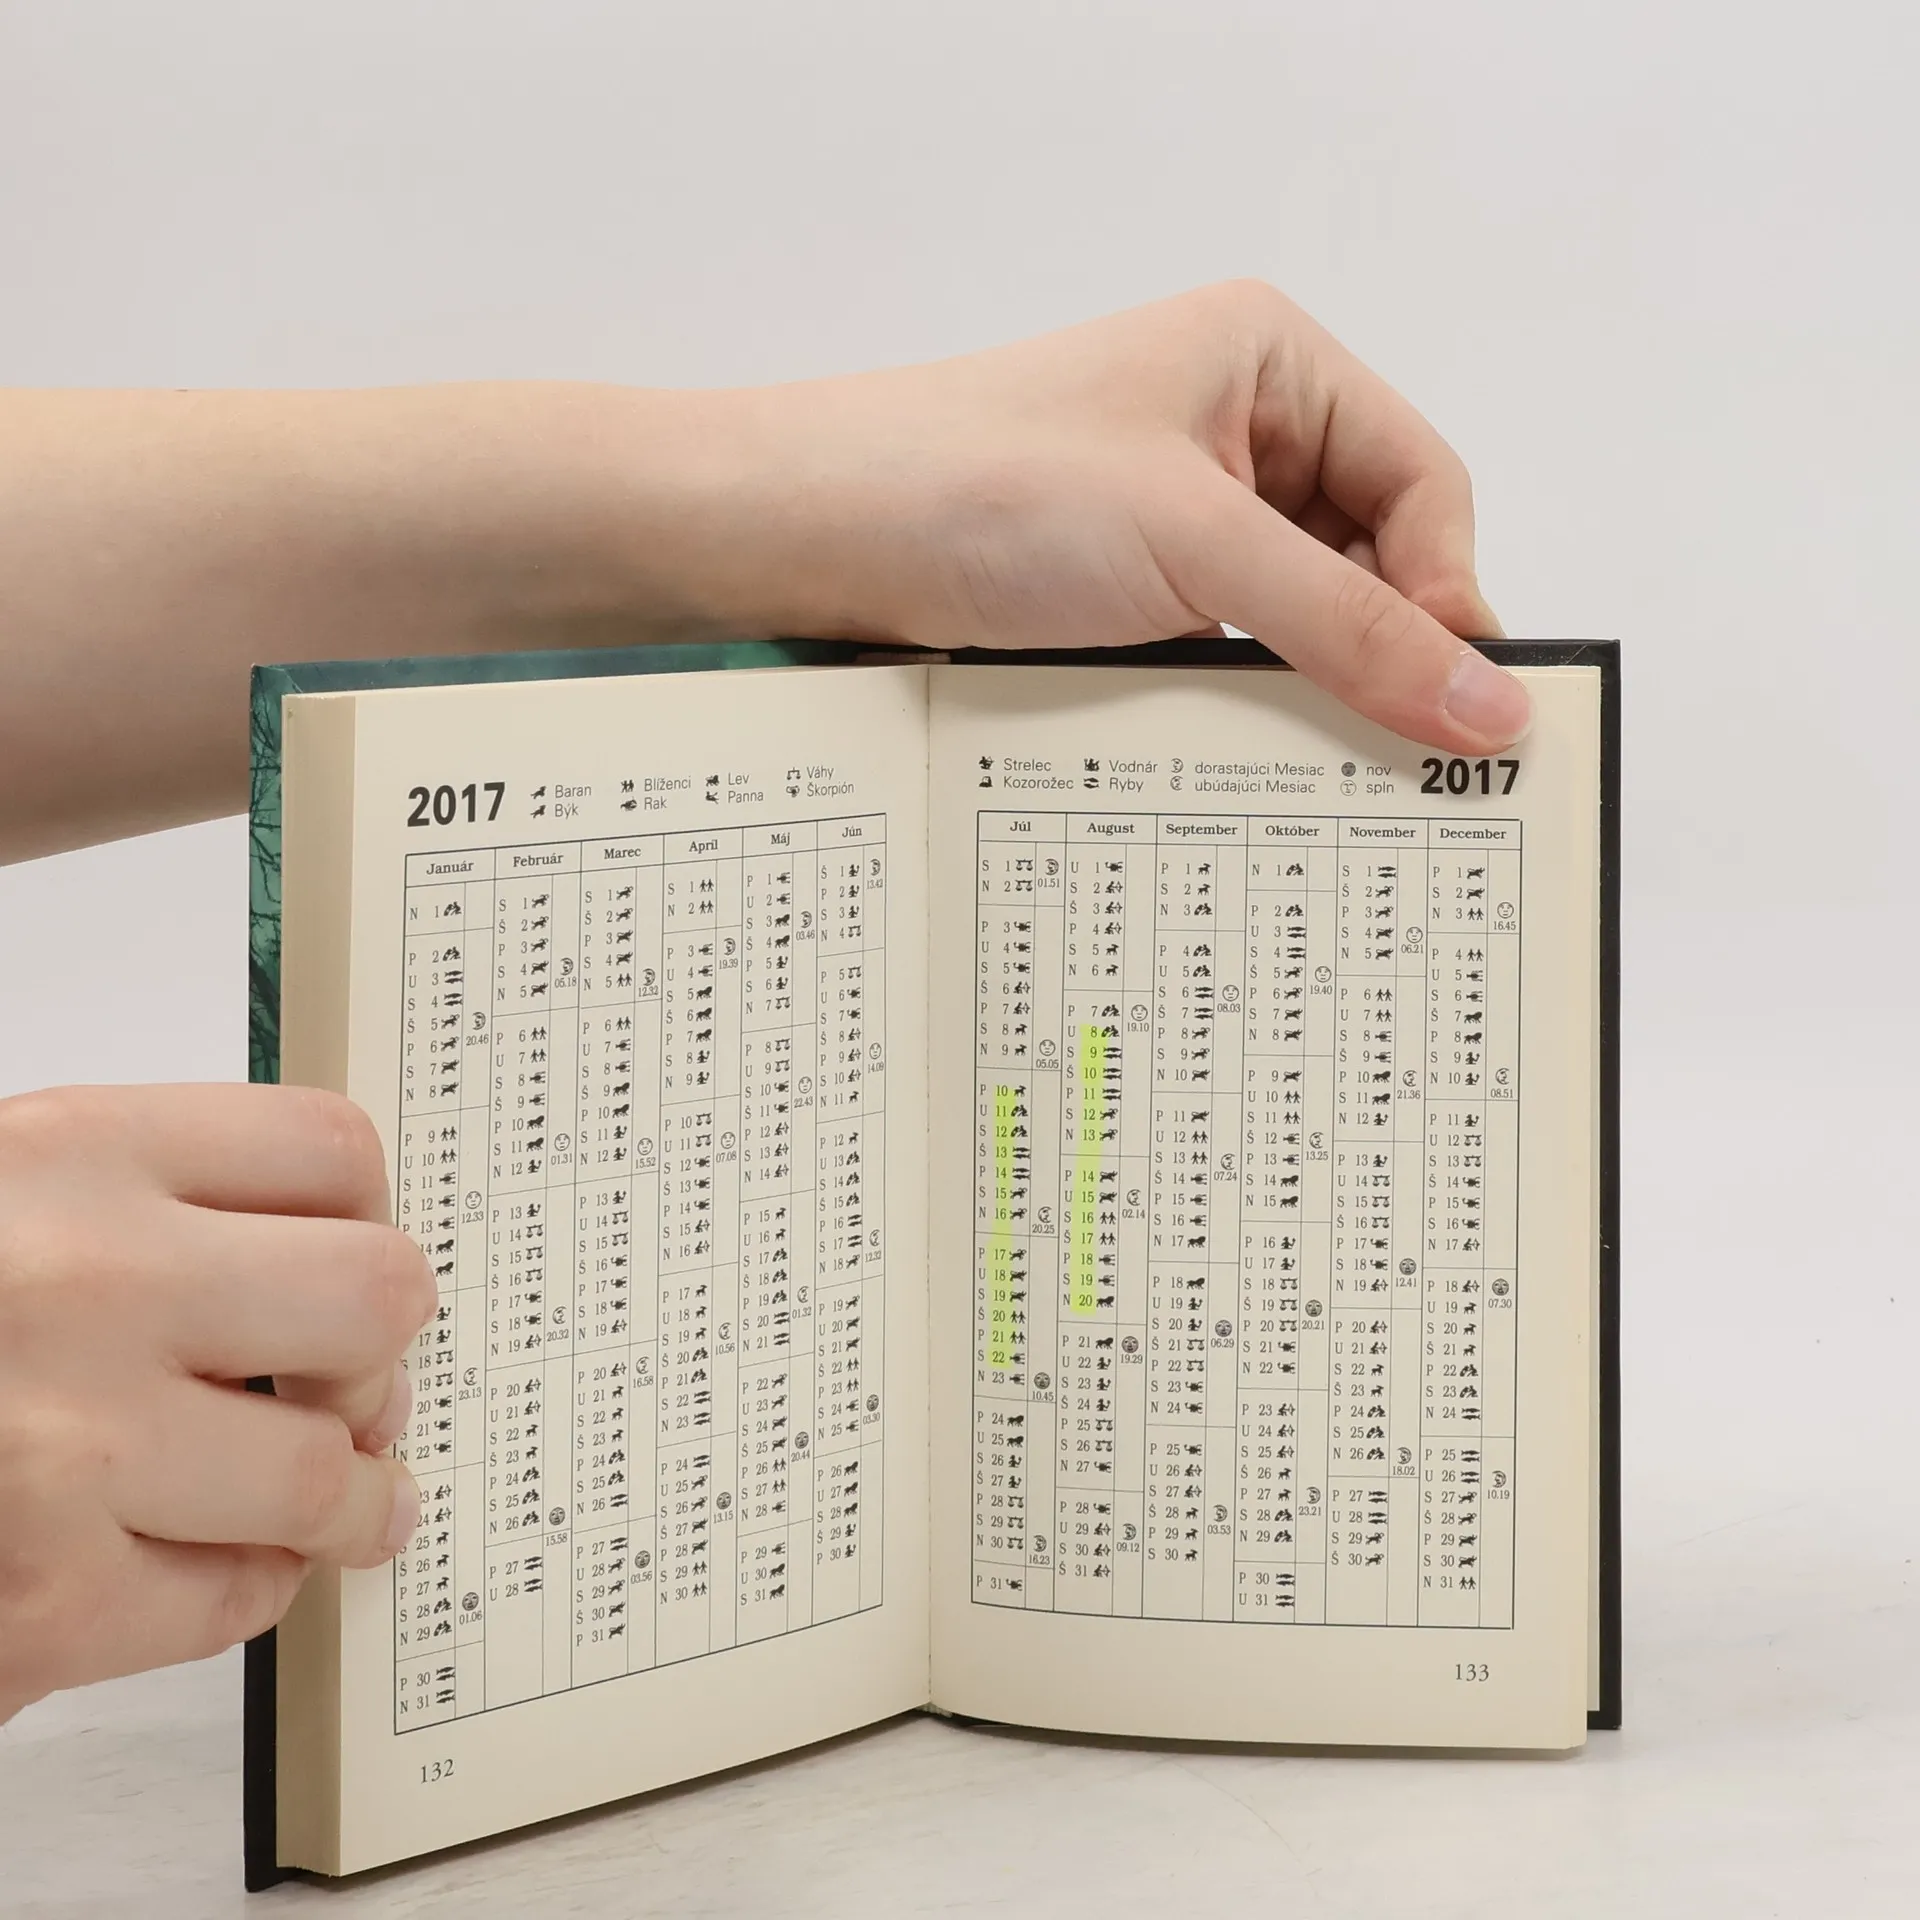 2017
Baran
Býk
Blíženci
Rak
Lev
Panna
Váhy
Škorpión
Január
N 1
P 2
U 3
S 4
Š 5
P 6 20.46
S 7
N 8
P 9
U 10
S 11
Š 12
P 13 12.33
14
17
S 18
19 23.13
20
21
N 22
23
24
25
Š 26
P 27
S 28 01.06
N 29
P 30
N 31
Február
S 1
Š 2
P 3
S 4 05.18
N 5
P 6
U 7
S 8
Š 9
P 10
S 11 01.31
N 12
P 13
U 14
S 15
Š 16
P 17
S 18 20.32
N 19
P 20
U 21
S 22
Š 23
P 24
S 25
N 26 15.58
P 27
U 28
Marec
S 1
Š 2
P 3
S 4
N 5 12.32
P 6
U 7
S 8
Š 9
P 10
S 11
N 12 15.52
P 13
U 14
S 15
Š 16
P 17
S 18
N 19
P 20 16.58
U 21
S 22
Š 23
P 24
S 25
N 26
P 27
U 28 03.56
S 29
Š 30
P 31
Apríl
S 1
N 2
P 3 19.39
U 4
S 5
Š 6
P 7
S 8
N 9
P 10
U 11 07.08
S 12
Š 13
P 14
S 15
N 16
P 17
U 18
S 19 10.56
Š 20
P 21
S 22
N 23
P 24
U 25
S 26 13.15
Š 27
P 28
S 29
N 30
Máj
P 1
U 2
S 3 03.46
Š 4
P 5
S 6
N 7
P 8
U 9
S 10 22.43
Š 11
P 12
S 13
N 14
P 15
U 16
S 17
Š 18
P 19 01.32
S 20
N 21
P 22
U 23
S 24
Š 25 20.44
P 26
S 27
N 28
P 29
U 30
S 31
Jún
Š 1 13.42
P 2
S 3
N 4
P 5
U 6
S 7
Š 8
P 9 14.09
S 10
N 11
P 12
U 13
S 14
Š 15
P 16
S 17 12.32
N 18
P 19
U 20
S 21
Š 22
P 23
S 24 03.30
N 25
P 26
U 27
S 28
Š 29
P 30
132
Strelec
Kozorožec
Vodnár
Ryby
dorastajúci Mesiac
ubúdajúci Mesiac
nov
spln
2017
Júl
S 1 01.51
N 2
P 3
U 4
S 5
Š 6
P 7
S 8
N 9 05.05
P 10
U 11
S 12
Š 13
P 14
S 15
N 16 20.25
P 17
U 18
S 19
Š 20
P 21
S 22
N 23 10.45
P 24
U 25
S 26
Š 27
P 28
S 29
N 30 16.23
P 31
August
U 1
S 2
Š 3
P 4
S 5
N 6
P 7 19.10
U 8
S 9
Š 10
P 11
S 12
N 13
P 14
U 15 02.14
S 16
Š 17
P 18
S 19
N 20
P 21 19.29
U 22
S 23
Š 24
P 25
S 26
N 27
P 28
U 29 09.12
S 30
Š 31
September
P 1
S 2
N 3
P 4
U 5
S 6 08.03
Š 7
P 8
S 9
N 10
P 11
U 12
S 13 07.24
Š 14
P 15
S 16
N 17
P 18
U 19
S 20 06.29
Š 21
P 22
S 23
N 24
P 25
U 26
S 27
Š 28 03.53
P 29
S 30
Október
N 1
P 2
U 3
S 4
Š 5 19.40
P 6
S 7
N 8
P 9
U 10
S 11
Š 12 13.25
P 13
S 14
N 15
P 16
U 17
S 18
Š 19 20.21
P 20
S 21
N 22
P 23
U 24
S 25
Š 26
P 27 23.21
S 28
N 29
P 30
U 31
November
S 1
Š 2
P 3
S 4 06.21
N 5
P 6
U 7
S 8
Š 9
P 10 21.36
S 11
N 12
P 13
U 14
S 15
Š 16
P 17
S 18 12.41
N 19
P 20
U 21
S 22
Š 23
P 24
S 25
N 26 18.02
P 27
U 28
S 29
Š 30
December
P 1
S 2
N 3 16.45
P 4
U 5
S 6
Š 7
P 8
S 9
N 10 08.51
P 11
U 12
S 13
Š 14
P 15
S 16
N 17
P 18 07.30
U 19
S 20
Š 21
P 22
S 23
N 24
P 25
U 26 10.19
S 27
Š 28
P 29
S 30
N 31
133